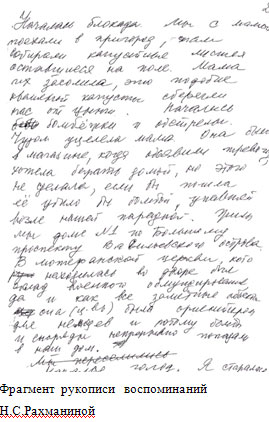 Началась блокада. Мы с мамой
поехали в пригород, там
собирали капустные листья
оставшиеся на поле. Мама
их засолила, это подобие
квашеной капусты сберегли
нас от цинги. Начались
бомбёжки и обстрелы.
Чудом уцелела мама. Она была
в магазине, когда объявили тревогу,
хотела бежать домой, но этого
не сделала, если бы пошла
её убило бы бомбой, упавшей
возле нашей парадной. Жили
мы доме №1 по Большому
проспекту Васильевского острова.
В лютеранской церкви, кото
находилась во дворе был
склад военного обмундирования
да и как все заметные
она (ц-вь) была ориентиром
для немцев и потому бомбы
и снаряды непрерывно попадали
в наш дом.
голод. Я старалась
Фрагмент рукописи воспоминаний
Н.С.Рахманиной